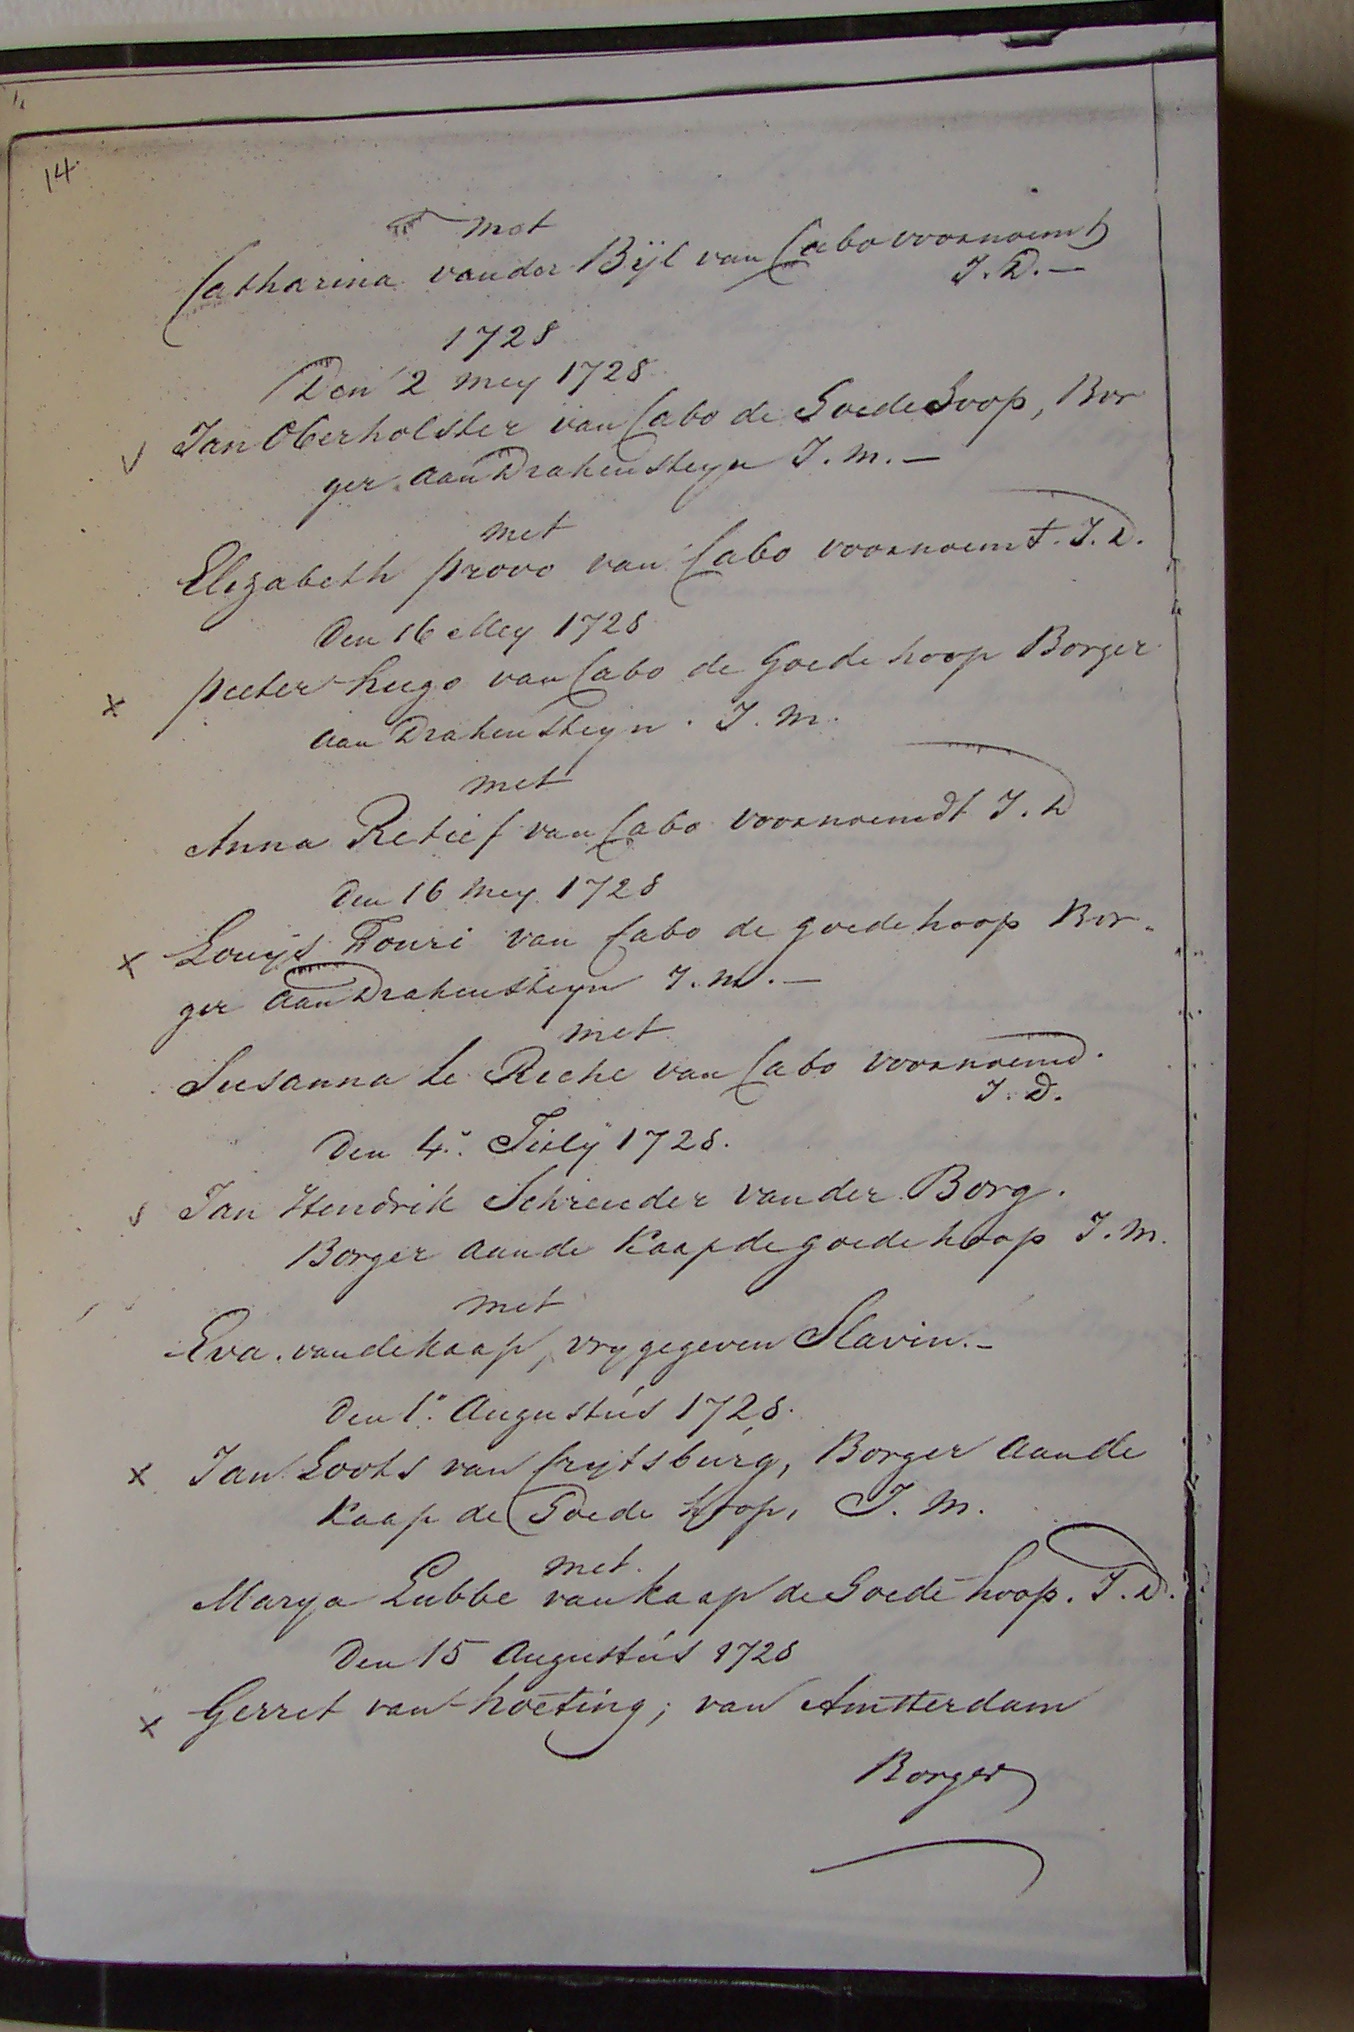 14
met
Catharina van der Bijl van Cabo voornoemt
J. D. —
1728
Den 2 mey 1728
Jan Oberholster van Cabo de Goede Hoop, Bor
ger aan Drakensteyn J. M. —
met
Elizabeth provo van Cabo voornoemt. J. D.
Den 16 Mey 1728
x pieter hugo van Cabo de Goede hoop Borger
aan Drakensteyn. J. M.
met
Anna Retief van Cabo voornoemdt J. D
Den 16 mey 1728
x Louijs Fouri van Cabo de goede hoop Bor-
ger aan Drakensteyn J. M. —
met
Susanna le Riche van Cabo voornoemd.
J. D.
Den 4.: Julÿ 1728.
Jan Hendrik Schreuder van der Borg.
Borger aan de Kaap de goede hoop J. M.
met
Eva. van de Kaap, vry gegeven Slavin. -
Den 1.: Augustús 1728.
x Jan Loots van Crytsbúrg, Borger aan de
Kaap de Goede hoop, J. M.
met.
Marya Lubbe van Kaap de Goede hoop. J. D.
Den 15 Augustús 1728
x Gerret van hoeting; van Amsterdam
Borger